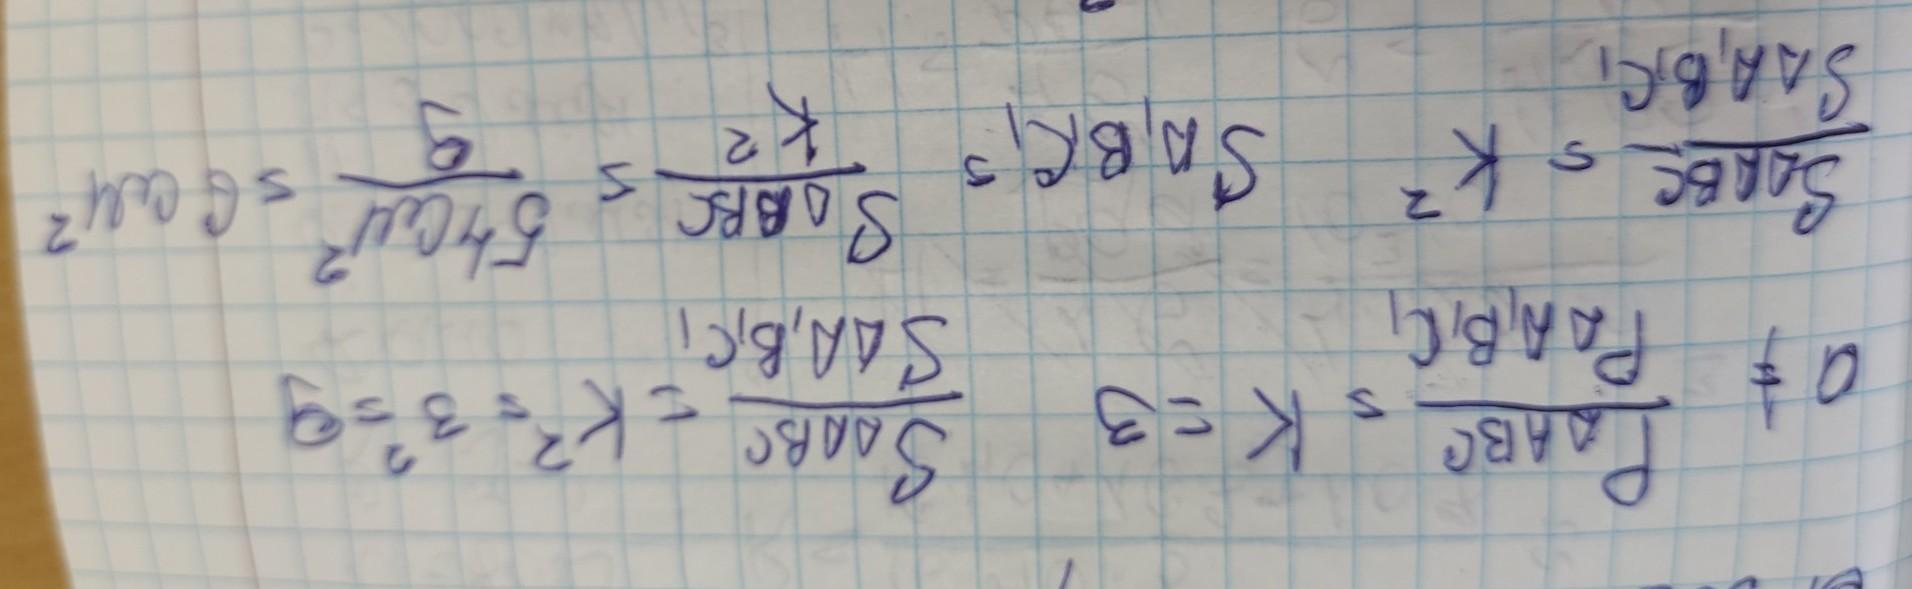 a ≠ P△ABC / P△A₁B₁C₁ = K = 3 S△ABC / S△A₁B₁C₁ = K² = 3² = 9
S△ABC / S△A₁B₁C₁ = K² SA₁B₁C₁ = S△ABC / K² = 54см² / 9 = 6см²